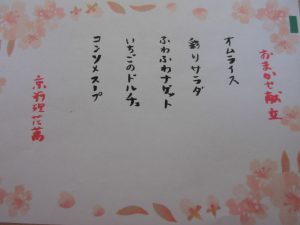 おまかせ献立
オムライス
彩りサラダ
ふわふわナゲット
いちごのドルチェ
コンソメスープ
京料理花萬